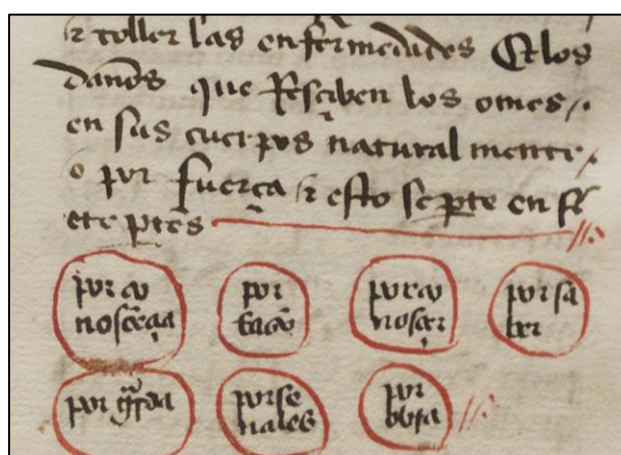 & toller las enfermedades Et los
daños que Resçiben los omes
en sus cuerpos natural mente
o por fuerça & esto se parte en si
ete partes
por co
nosçençia
por
por co
nosçer
por sa
ber
por
por se
nales
por
obra